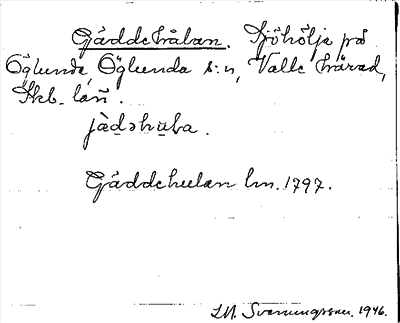 Gäddehålan. Sjöhölja på
Öglunda, Öglunda s:n, Valle härad,
Skb. län.
jädəhula.
Gäddehulan lm. 1797.
S. Svenungsson. 1946.